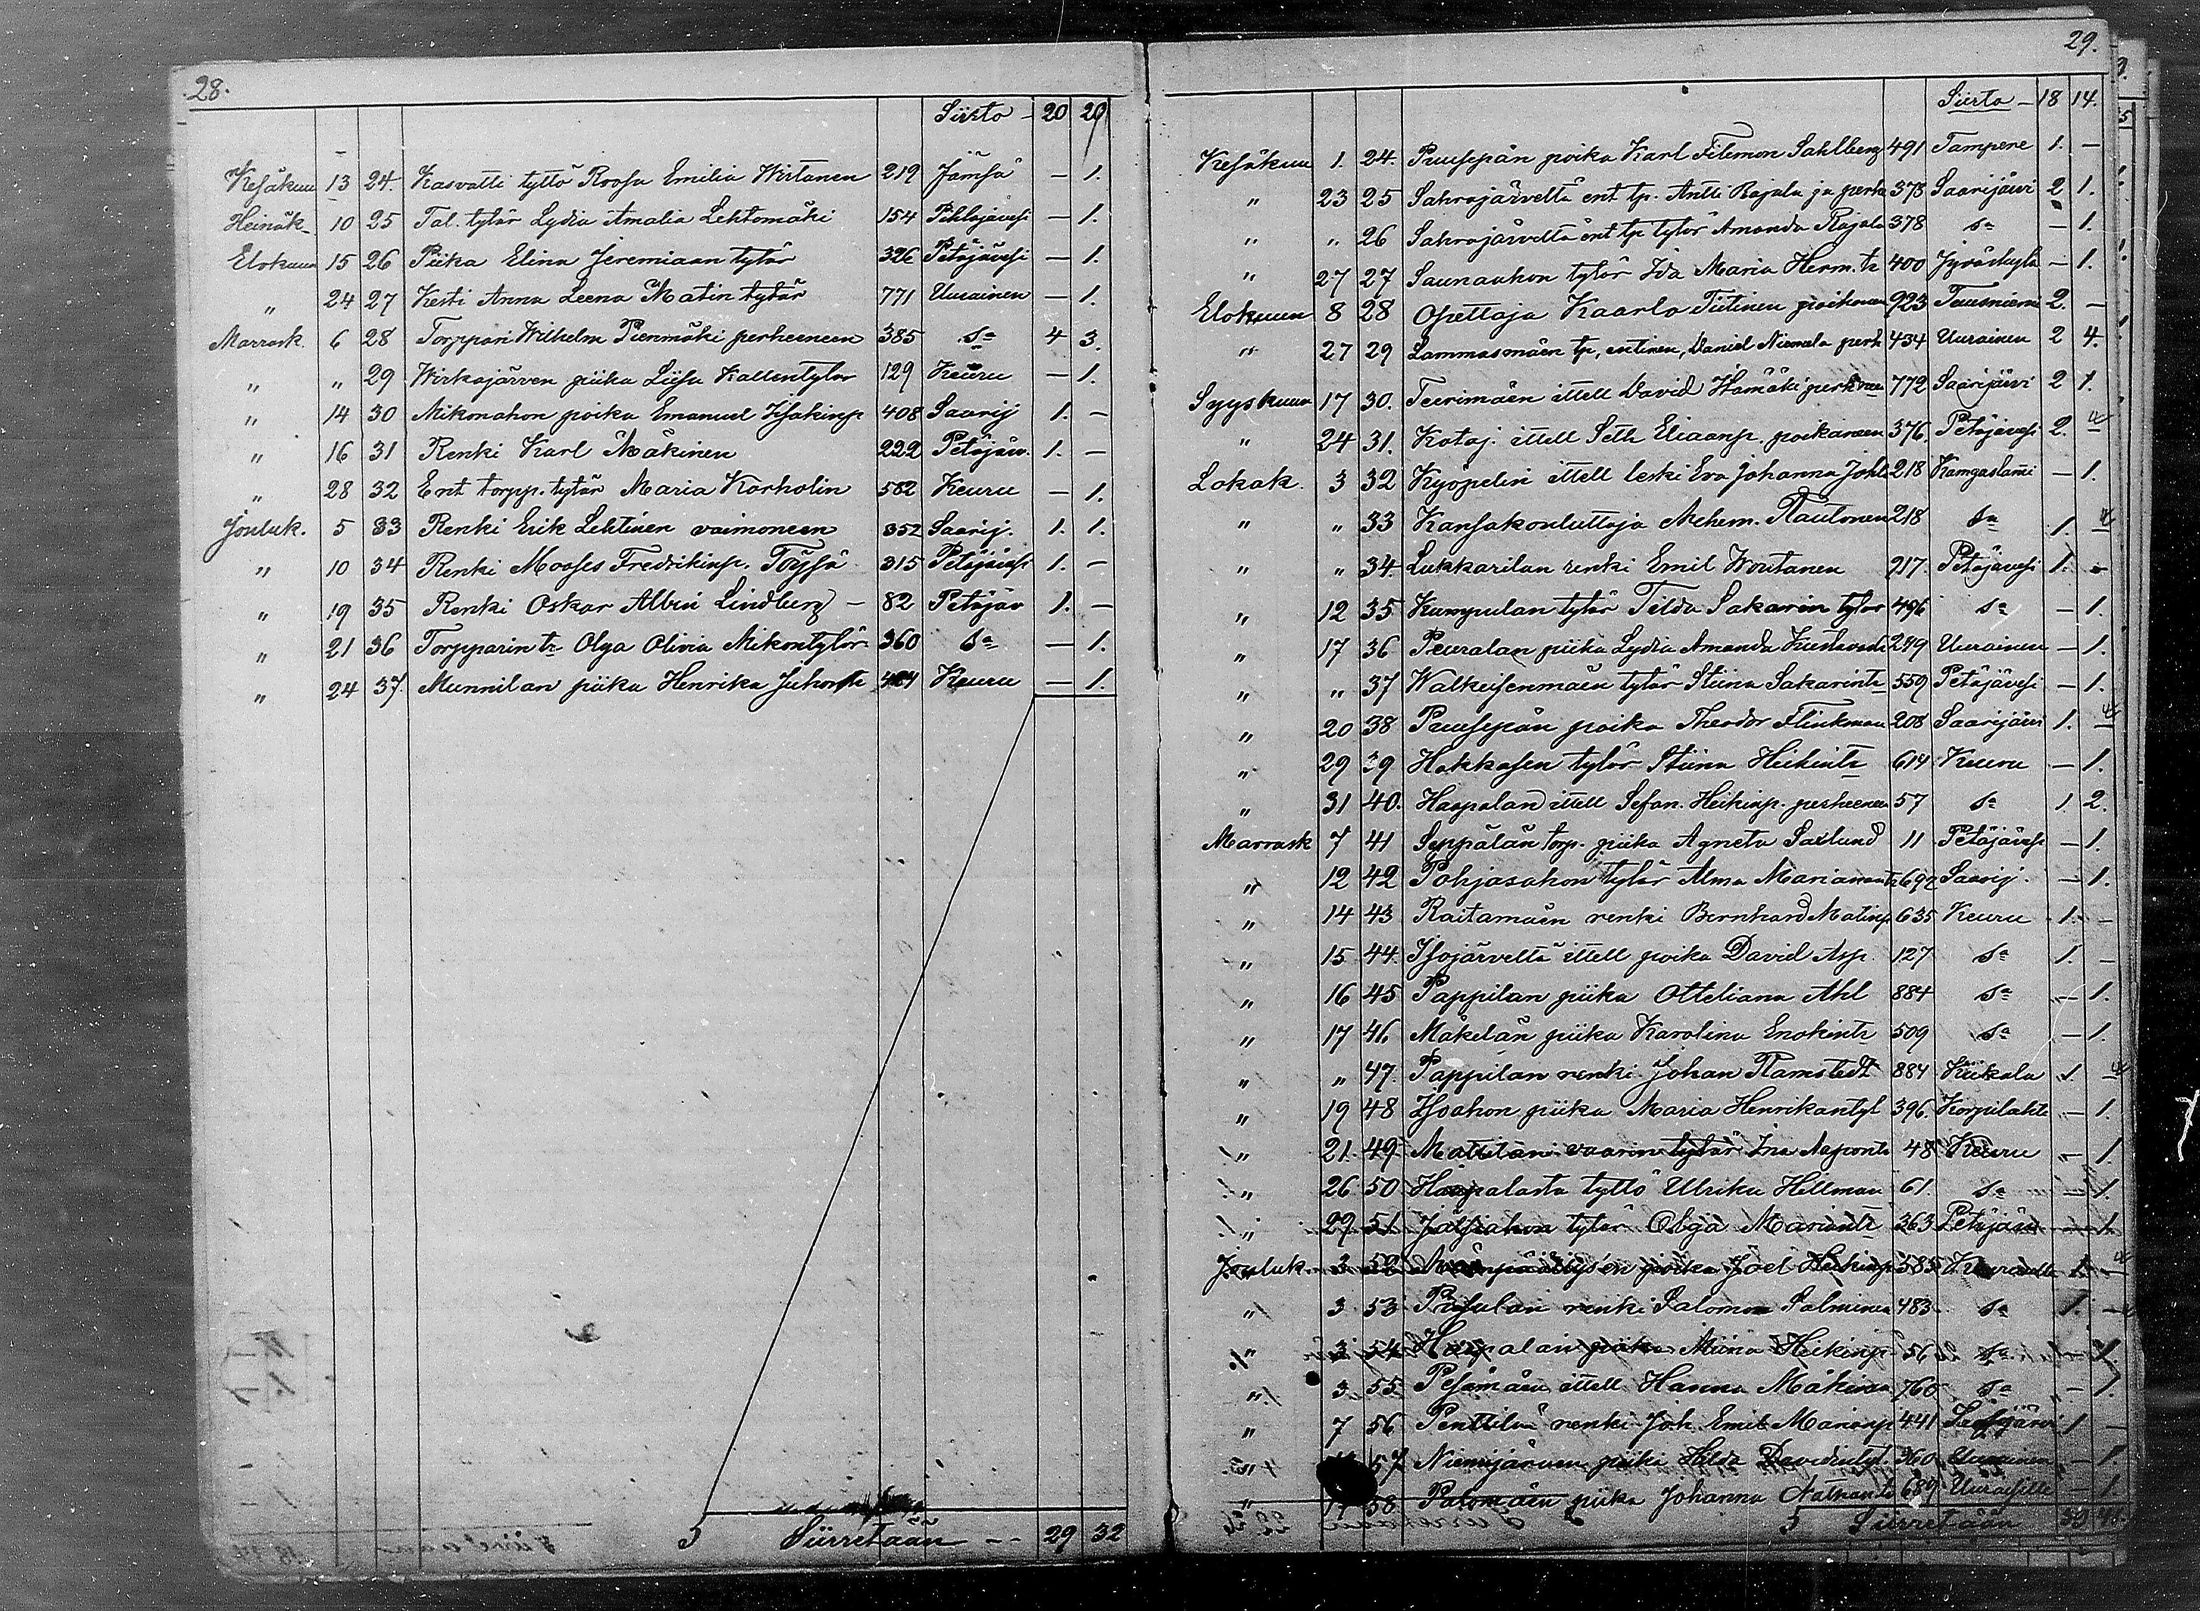 28.
Siirto - 20 29
Kesäkuu 13 24. Kasvatti tyttö Roosa Emilia Wirtanen 219 Jämsä — 1.
Heinäk- 10 25 Tal. tytär Lydia Amalia Lehtomäki 154 Pihlajavesi — 1.
Elokuun 15 26 Piika Elina Jeremiaan tytär 326 Petäjävesi — 1.
" 24 27 Kesti Anna Leena Matin tytär 771 Uurainen — 1.
Marrask. 6 28 Torppari Wilhelm Pienmäki perheeneen 385 sa 4 3.
" " 29 Wirkajärven piika Liisa Kallentytär 129 Keuru — 1.
" 14 30 Mikonahon poika Emanuel Iisakinp 408 Saarij 1. —
" 16 31 Renki Karl Mäkinen 222 Petäjäv. 1. —
" 28 32 Ent torpp. tytär Maria Korholin 582 Keuru — 1.
Jouluk. 5 33 Renki Erik Lehtinen vaimoneen 352 Saarij. 1. 1.
" 10 34 Renki Mooses Fredrikinp. Töysä 315 Petäjävesi 1. —
" 19 35 Renki Oskar Albin Lindberg — 82 Petäjäv 1. —
" 21 36 Torpparin tr Olga Olivia Mikontytär 360 sa — 1.
" 24 37. Munnilan piika Henrika Juhontr Keuru — 1.
Siirretään - - 29 32
29.
Siirto - 18 14.
Kesäkuu 1. 24. Puusepän poika Karl Filemon Sahlberg 491 Tampere 1. —
" 23 25 Sahrajärveltä ent tp. Antti Rajala ja perhe 378 Saarijärvi 2 1.
" " 26 Sahrajärveltä ent tp tytär Amanda Rajala 378 sa — 1.
" 27 27 Saunauhon tytär Ida Maria Herm. tr 400 Jyväskylä — 1.
Elokuun 8 28 Opettaja Kaarlo Tiitinen poikineen 923 Tuusniemi 2. —
" 27 29 Lammasmäen tp, entinen, Daniel Niemelä perh 434 Uurainen 2 4.
Syyskuun 17 30. Teerimäen ittell David Hämäki perh neen 772 Saarijärvi 2 1.
" 24 31. Kotaj. ittell Seth Eliaanp. poikaneen 376. Petäjävesi 2. —
Lokak. 3 32 Kyöpelin ittell leski Eva Johanna Joh 218 Kangaslampi — 1.
" " 33 Kansakouluttaja Mehem. Rautonen 218 sa 1. —
" " 34. Lukkarilan renki Emil Woutanen 217. Petäjävesi 1. —
" 12 35 Kumpulan tytär Tilda Sakarin tytär 496 sa — 1.
" 17 36 Peuralan piika Lydia Amanda Kustaantr 249 Uurainen — 1.
" " 37 Walkeisenmäen tytär Stiina Sakarintr 559 Petäjävesi — 1.
" 20 38 Puusepän poika Theodor Flinkman 208 Saarijärvi 1. —
" 29 39 Hokkasen tytär Stiina Heikintr 614 Keuru — 1.
" 31 40. Haapalan ittell Sefan. Heikinp. perheeneen 57 sa 1 2.
Marrask 7 41 Seppälän torp. piika Agneta Saxlund 11 Petäjävesi — 1.
" 12 42 Pohjasahon tytär Alma Mariantr 697 Saarij. — 1.
" 14 43 Raitamäen renki Bernhard Matinp. 635 Keuru 1. —
" 15 44. Isojärveltä ittell poika David Asp. 127 sa 1. —
" 16 45 Pappilan piika Otteliana Ahl 884 sa — 1.
" 17 46 Mäkelän piika Karolina Enokintr 509 sa — 1.
" " 47. Pappilan renki Johan Ramstedt 884 Kiikala 1. —
" 19 48 Isoahon piika Maria Henrikantyt 396. Korpilahti — 1.
" 21. 49 Mattilan vaarin tytär Ina Aapontr 48 Keuru — 1.
" 26 50 Haapalasta tyttö Ulrika Hellman 61. sa — 1.
" 29 51 tytär Olga Mariantr 363 Petäjäv — 1.
Jouluk. 3 52 poika Joel Heikinp 585 1. —
" 3 53 renki Salomon Salminen 483 sa 1. —
" 3 54 Haapalan piika Miina Heikinp 56 sa — 1.
" 3 55 ittell Hanna Mäkinen 760 sa — 1.
" 7 56 Penttilän renki Joh. Emil Marianp 441 1 —
57 Niemijärven piika Hilda Davidintyt. 360 Uurainen — 1.
" 58. Palomäen piika Johanna Nathantr 689 — 1.
Siirretään